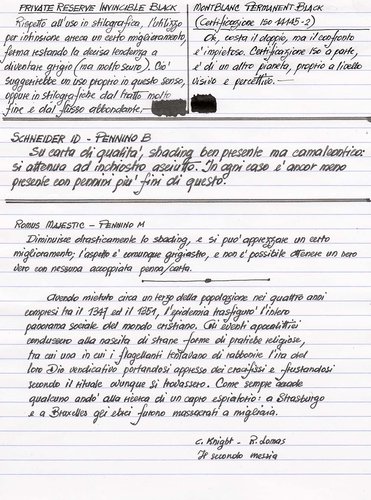 PRIVATE RESERVE INVINCIBLE BLACK
Rispetto all'uso in stilografica, l'utilizzo
per intinsione arreca un certo miglioramento,
ferma restando la decisa tendenza a
diventare grigio (ma molto scuro). Ciò
suggerirebbe un uso proprio in questo senso,
oppure in stilografiche dal tratto molto
fine e dal flusso abbondante.
MONTBLANC PERMANENT BLACK
(Certificazione ISO 14145-2)
Oh, costa il doppio, ma il confronto
è impietoso. Certificazione ISO a parte,
è di un altro pianeta, proprio a livello
visivo e percettivo.
SCHNEIDER ID - PENNINO B
Su carta di qualità, shading ben presente ma camaleontico:
si attenua ad inchiostro asciutto. In ogni caso è ancor meno
presente con pennini più fini di questo.
ROMUS MAJESTIC - PENNINO M
Diminuisce drasticamente lo shading, e si può apprezzare un certo
miglioramento; l'aspetto è comunque grigiastro, e non è possibile ottenere un nero
vero con nessuna accoppiata penna/carta.
Avendo mietuto circa un terzo della popolazione nei quattro anni
compresi tra il 1347 ed il 1351, l'epidemia trasfigurò l'intero
panorama sociale del mondo cristiano. Gli eventi apocalittici
condussero alla nascita di strane forme di pratiche religiose,
tra cui una in cui i flagellanti tentavano di rabbonire l'ira del
loro Dio vendicativo portandosi appresso dei crocifissi e frustandosi
secondo il rituale ovunque si trovassero. Come sempre accade
qualcuno andò alla ricerca di un capro espiatorio: a Strasburgo
e a Bruxelles gli ebrei furono massacrati a migliaia.
C. Knight - R. Lomas
Il secondo messia